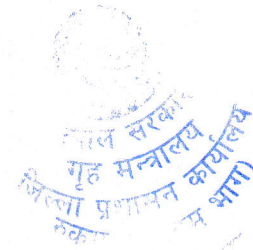 सरकार
गृह मन्त्रालय
जिल्ला प्रशासन कार्यालय
भाग)